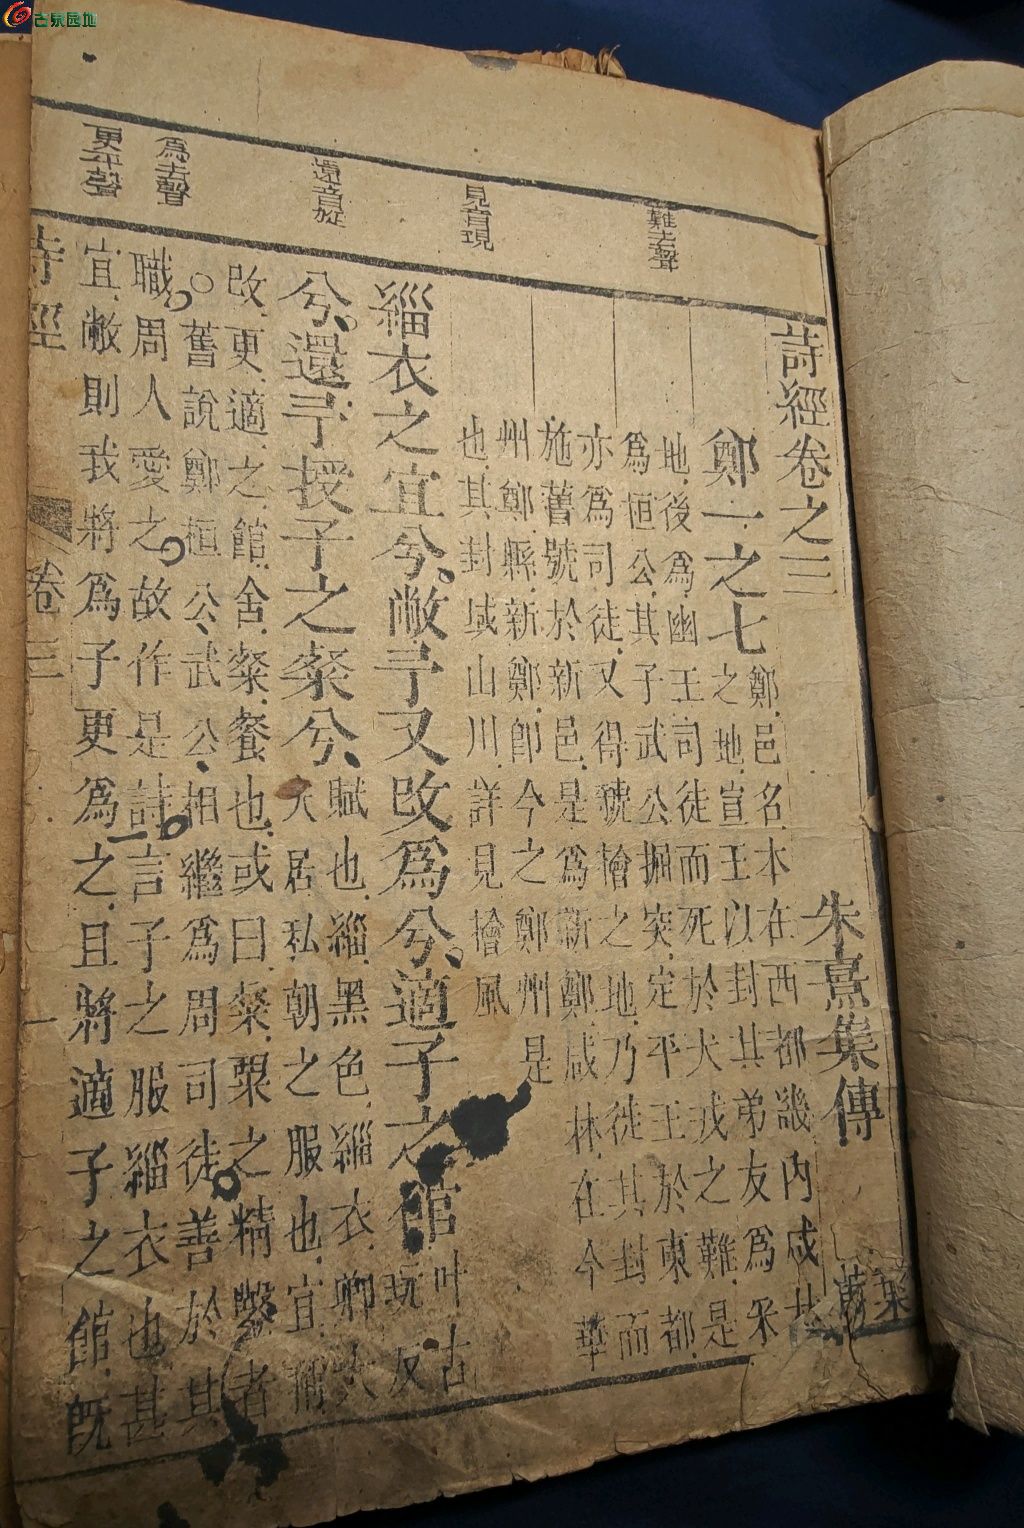 古泉园地
難去聲
見音現
還音旋
爲去聲
更平聲
詩經卷之三
朱熹集傳
鄭一之七
鄭邑名本在西都畿內咸林
之地宣王以封其弟友爲采
地後爲幽王司徒而死於犬戎之難是
爲桓公其子武公掘突定平王於東都
亦爲司徒又得虢檜之地乃徙其封而
施舊號於新邑是爲新鄭咸林在今華
州鄭縣新鄭卽今之鄭州是
也其封域山川詳見檜風
緇衣之宜兮敝予又改爲兮適子之館
叶古
玩反
兮還予授子之粲兮
賦也緇黑色緇衣卿大
夫居私朝之服也宜稱
改更適之館舍粲餐也或曰粲粟之精鑿者
○舊說鄭桓公武公相繼爲周司徒善於其
職周人愛之故作是詩言子之服緇衣也甚
宜敝則我將爲子更爲之且將適子之館旣
詩經
卷三
一